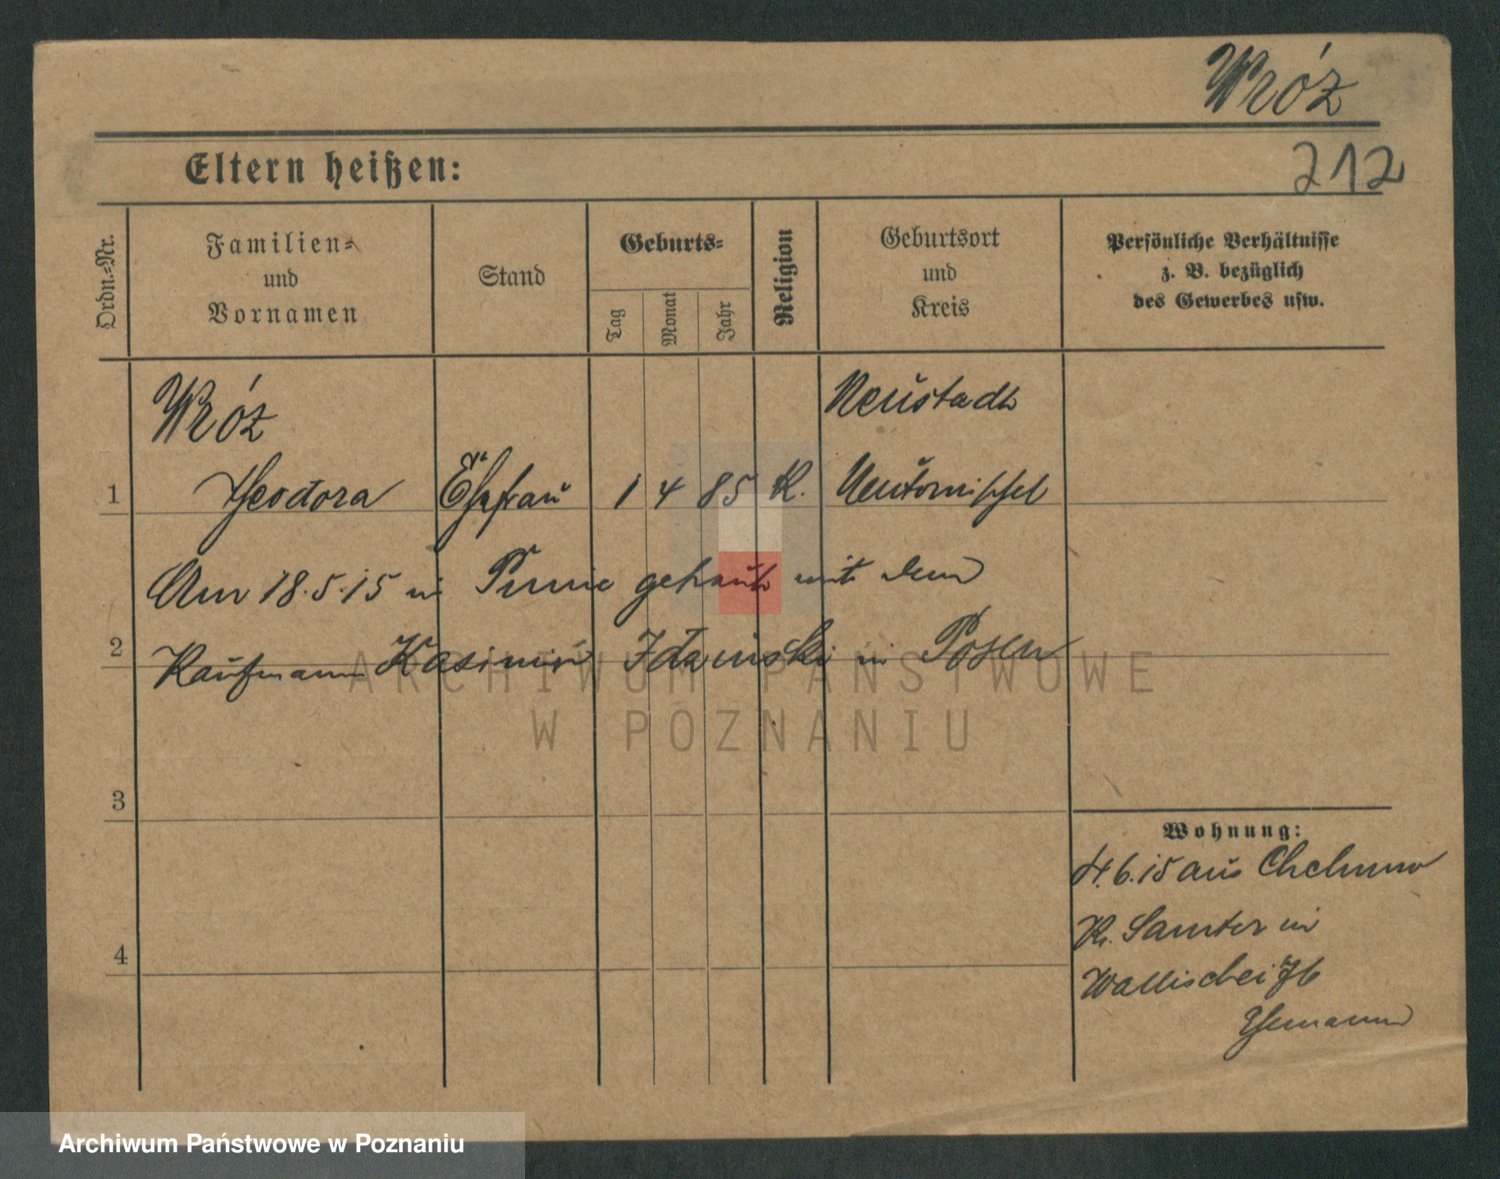 Wróz
Eltern heißen:
212
Ordn.-Nr.
Familien-
und
Vornamen
Stand
Geburts-
Tag
Monat
Jahr
Religion
Geburtsort
und
Kreis
Persönliche Verhältnisse
z. B. bezüglich
des Gewerbes usw.
Wróz
Neustadt
1 Theodora Ehefrau 1 4 85 K. Neutomischel
Am 18.5.15 in Pinne getraut mit dem
2 Kaufmann Kasimir in Posen
3
4
Wohnung:
4.6.15 aus Chelmno
Kr. Samter in
Wallischei 76
Ehemann
ARCHIWUM PAŃSTWOWE
W POZNANIU
Archiwum Państwowe w Poznaniu